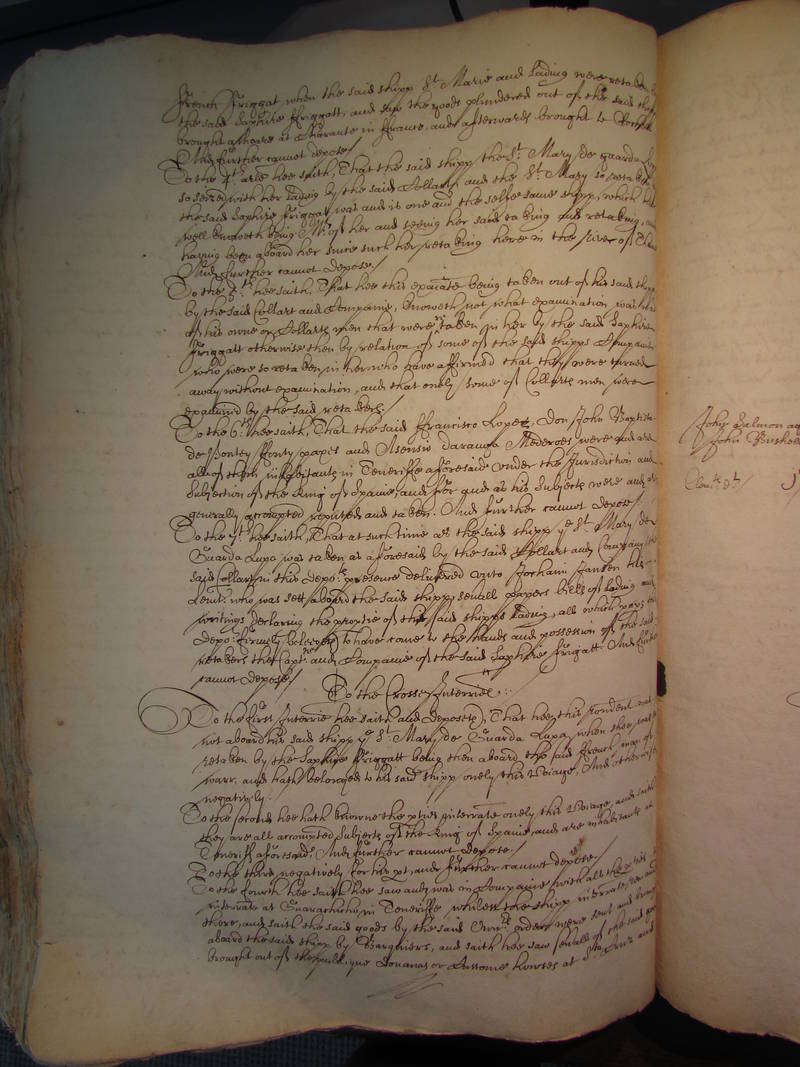 French ffriggat, when the said shipp St. Marie and lading were retaken by
the said Saphire ffriggatt, and saw the goods plundered out of the said shipp
brought ashoare at Charante in ffrance, and afterwards brought to
And further cannot depose./
To the 4th. arle hee saith, That the said shipp the St. Mary de Guarda Lupa
so seized with her lading by the said Collart and the St. Mary so retaken by
the said Saphire ffriggat was and is one and the selfe same shipp, which hee
well knoweth being Mr. of her and seeing her said taking and retaking, and
having been aboard her since such her retaking here in the River of Thames
And further cannot depose./
To the 5th. hee saith, That hee this exãiate being taken out of his said shipp
by the said Collart and Companie, knoweth not what examination was had
of his owne or Collarts men that were taken in her by the said Saphire
ffriggatt otherwise then by relation of some of the said shipps Companie
who were so retaken in her who have affirmed that they were turned
away without examination, and that onely some of Collarts men were
examined by the said retakers./
To the 6th. hee saith, That the said ffrancisco Lopez, Don John Baptista
de Pontey ffonty and Asensio Mederoes were and are
all of them inhabitants in Teneriffe aforesaid under the Jurisdiction and
Subjection of the King of Spaine, and for and as his Subjects were and are
generally accompted reputed and taken. And further cannot depose./
To the 7th. hee saith, That at such time as the said shipp ye St. Mary de
Guarda Lupa was taken as aforesaid by the said Collart and Company the
said Collart in this depots. presence delivered unto Jochann Jansen his
Leivt. who was sett aboard the said shipp, severall papers bills of lading and
writings declaring the proprtie of the said shipps lading, all which this
depot. firmely beleeveth to have come to the hands and possession of the said
retakers the Captne. and Companie of the said Saphire ffrigatt. And further
cannot depose./
To the Crosse Interries.
To the first Interrie hee saith and deposeth, That hee this rendent was
not aboard his said shipp ye St. Mary de Guarda Lupa when shee was
retaken by the Saphire ffriggatt being then aboard the said french man of
warr. and hath belonged to his said shipp onely this Voiage, And otherwise
negatively.
To the second hee hath knowne the pties interrate onely this Voiage, and saith
they are all accompted Subjects of the King of Spaine, and are inhabitants of
Teneriff aforesaid. And further cannot depose./
To the third negatively for his pt, and further cannot depose./
To the fourth hee saith hee saw and was in Companie with all the
interrate at Guarachicho in Teneriffe whilest the shipp interrate
there, and saith the said goods by the said Owners order were sent and brought
aboard the said shipp by Barquiers, and saith hee saw severall of the said goods
brought out of the publique Douanas or Custome howses at Sta. Cruz and
John Salmon
John Bushell
Clau. Dt./